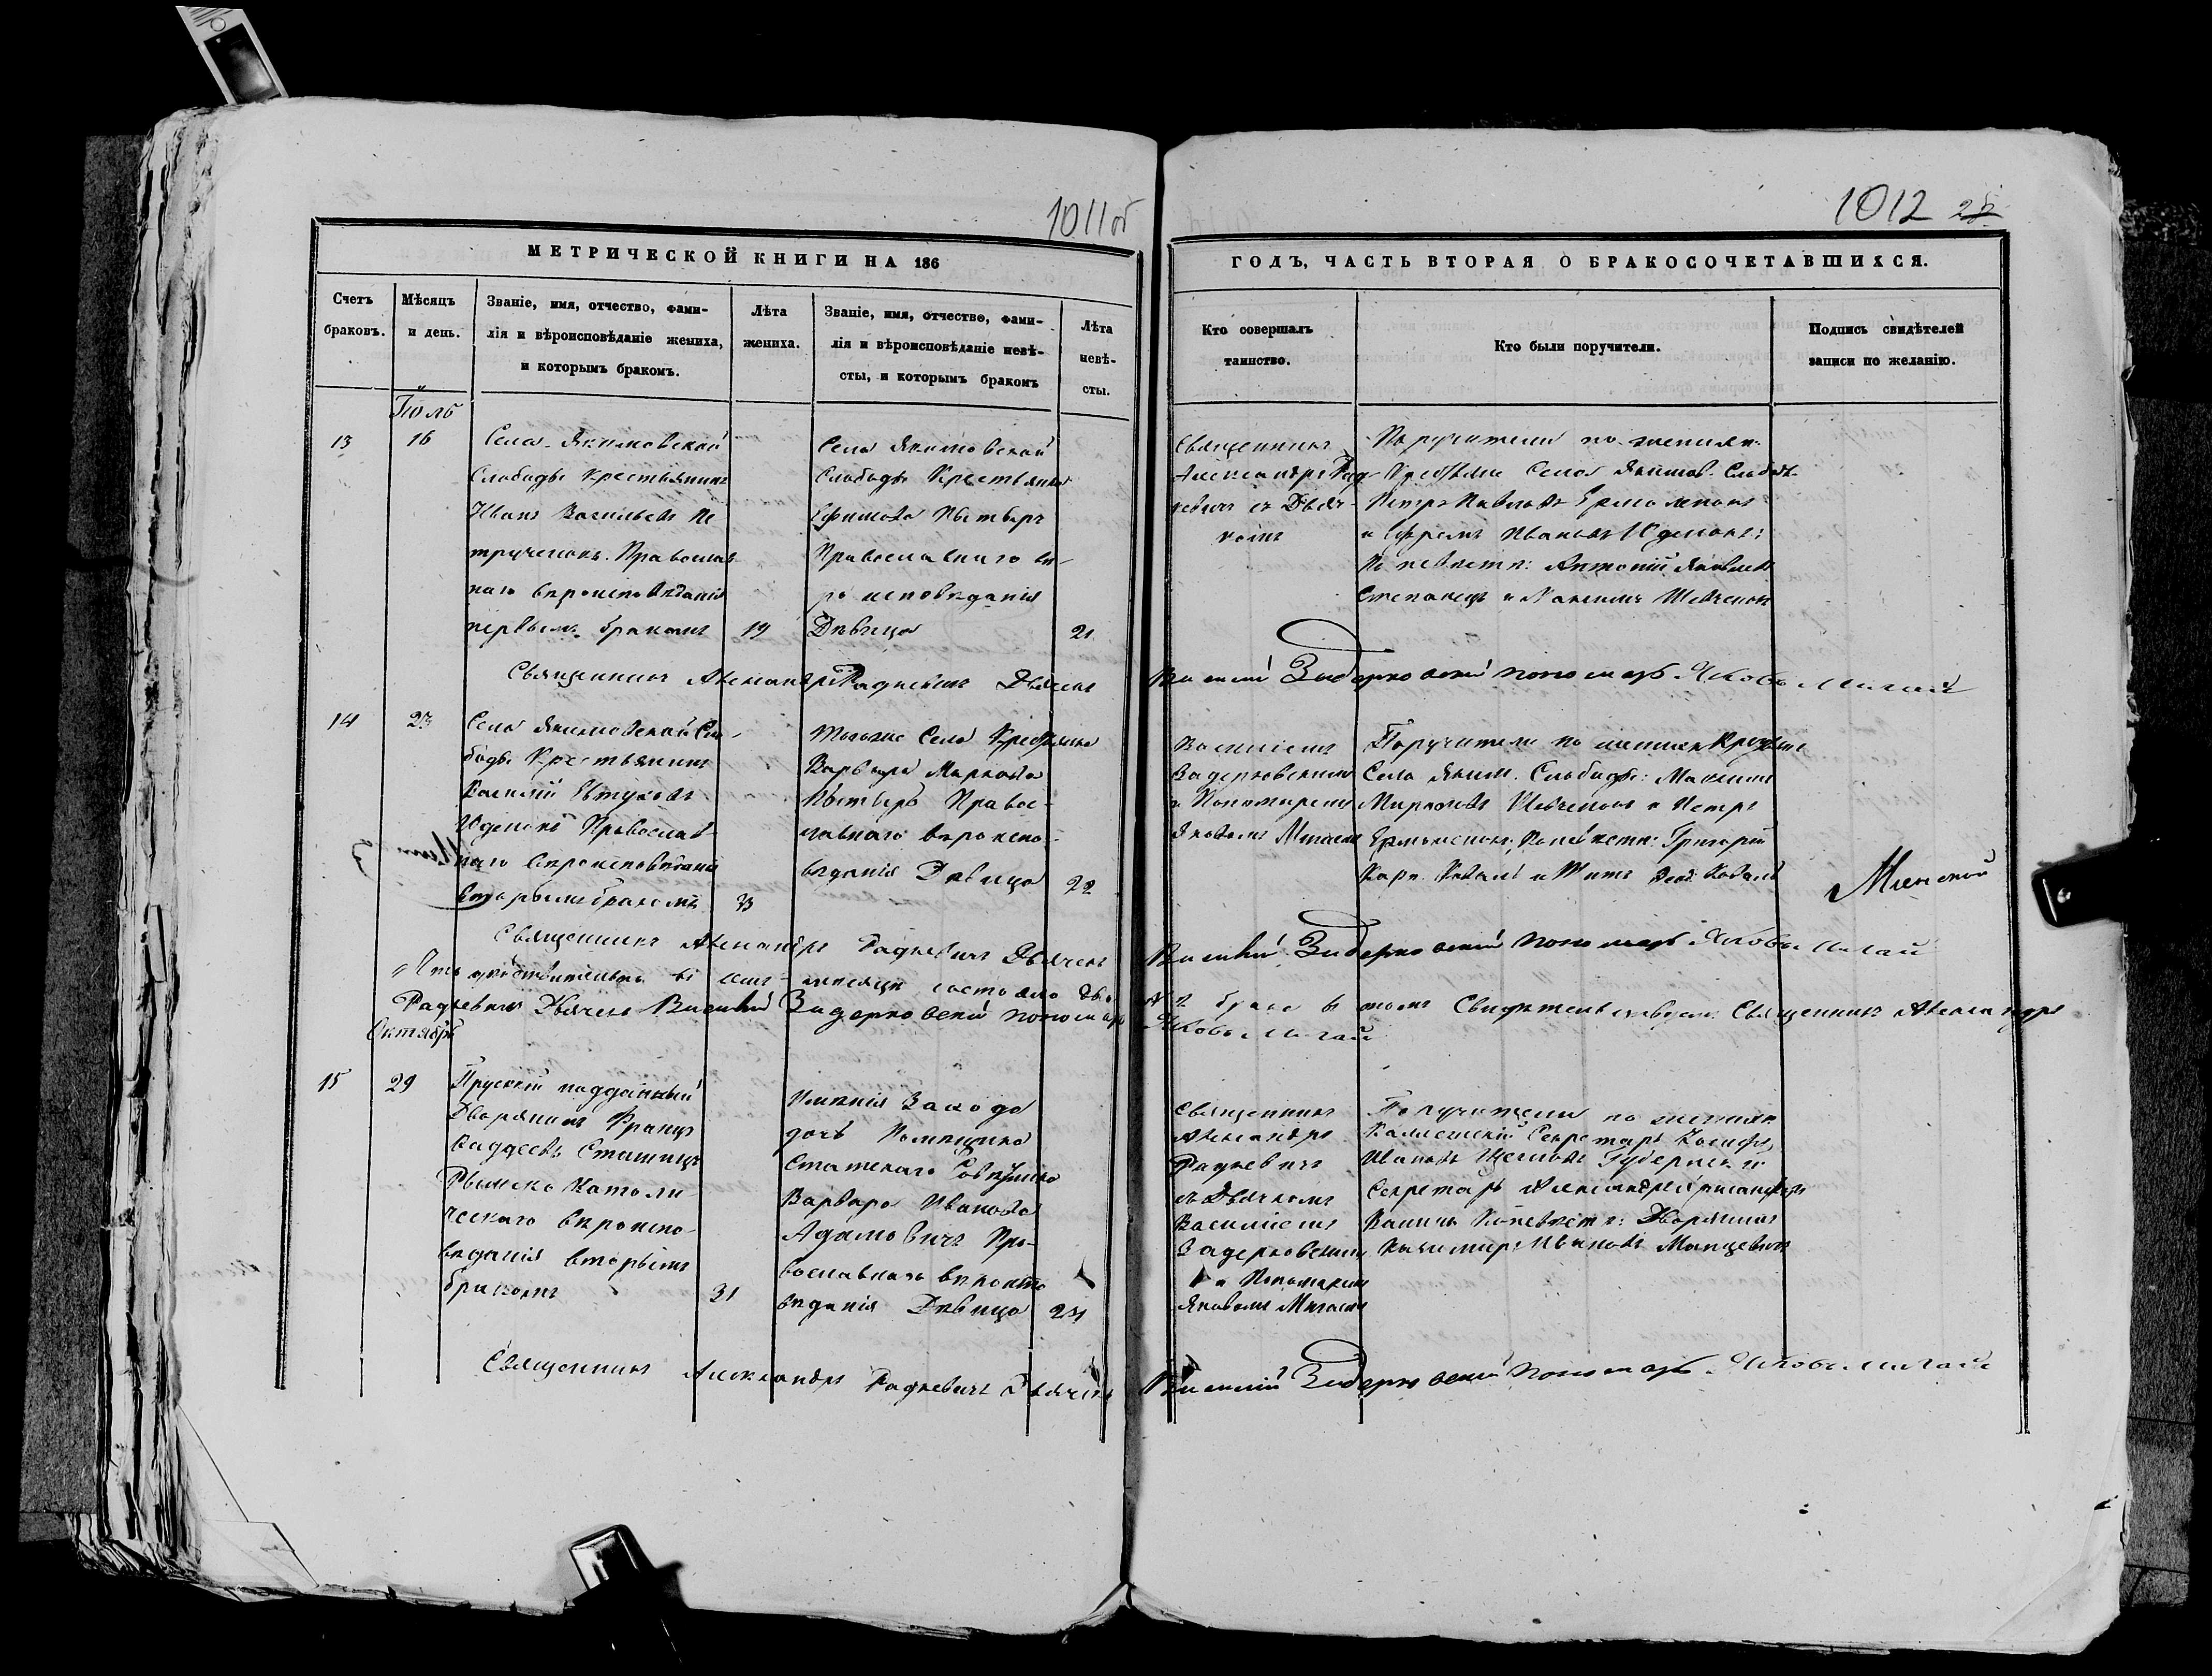 1011об
1012 22
МЕТРИЧЕСКОЙ КНИГИ НА 186
ГОДЪ, ЧАСТЬ ВТОРАЯ О БРАКОСОЧЕТАВШИХСЯ.
Счетъ
браковъ.
Мѣсяцъ
и день.
Званіе, имя, отчество, фами-
лія и вѣроисповѣданіе жениха,
и которымъ бракомъ.
Лѣта
жениха.
Званіе, имя, отчество, фами-
лія и вѣроисповѣданіе невѣ-
сты, и которымъ бракомъ
Лѣта
невѣ-
сты.
Кто совершалъ
таинство.
Кто были поручители.
Подпись свидѣтелей
записи по желанію.
Іюль
13
16
Села Якимовской
Слободы Крестьянинъ
Иванъ Васильевъ Пе
трученокъ Православ
наго вѣроисповѣданія
первымъ бракомъ
19
Села Якимовской
Слободы Крестьянка
Ефимова
Православнаго вѣ-
ро исповѣданія
Дѣвица
21
Священникъ
Александръ Рад
кевичъ съ Дьяч-
комъ
Поручители по женихѣ:
Крестьяне Села Якимов. Слобод.
Петръ Павловъ Ермоленокъ
и Ефремъ Ивановъ
По невѣстѣ: Антоній Яковлевъ
Степанецъ и Максимъ Шевченокъ
Священникъ Александръ Радкевичъ Дьячекъ Василій Задерковскій пономарь Яковъ Мигай
14
23
Села Якимовской Сло-
боды Крестьянинъ
Василій
Православ-
наго вѣроисповѣданія
вторымъ бракомъ
33
Тогоже Села Крестьянка
Варвара Маркова
Правос-
лавнаго вѣроиспо-
вѣданія Дѣвица
22
Василіемъ
Задерковскимъ
и Пономаремъ
Яковомъ Мигаемъ
Поручители по женихѣ Крестьяне
Села Яким. Слободы: Максимъ
Шевченокъ и Петръ
Ермоленокъ; По невѣстѣ: Григорій
Карп. Коваль и Титъ Коваль
Минской
Священникъ Александръ Радкевичъ Дьячекъ Василій Задерковскій пономарь Яковъ Мигай
Что дѣйствительно въ семъ мѣсяцѣ состояло два № 2 брака въ томъ Свидѣтельствуемъ Священникъ Александръ
Радкевичъ Дьячекъ Василій Задерковскій пономарь Яковъ Мигай
Октябрь
15
29
Прускій подданный
Дворянинъ Францъ
Фаддеевъ Сташицъ
Римско Католи
ческаго вѣроиспо-
вѣданія вторымъ
бракомъ
31
Имѣнія
дочь Помѣщика
Статскаго Совѣтника
Варвара Иванова
Адамовичъ Пра-
вославнаго вѣроиспо
вѣданія Дѣвица
24
Священникъ
Александръ
Радкевичъ
съ Дьячкомъ
Василіемъ
Задерковскимъ
и Пономаремъ
Яковомъ Мигаемъ
Поручители по женихѣ
Коллежскій Секретарь Іосифъ
Губернскій
Секретарь Александръ
По невѣстѣ: Дворянинъ
Казимиръ Ивановъ Манцевичъ
Священникъ Александръ Радкевичъ Дьячекъ Василій Задерковскій пономарь Яковъ Мигай